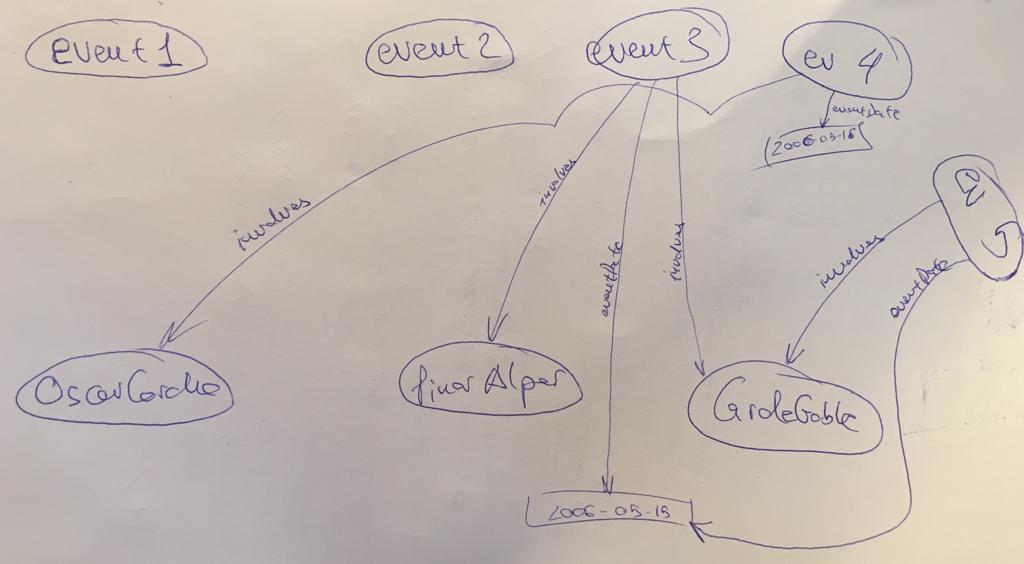 event 1
event 2
event 3
ev 4
eventDate
2006-05-16
Ev 5
involves
involves
involves
involves
eventDate
eventDate
OscarCorcho
PinarAlper
CaroleGoble
2006-05-15